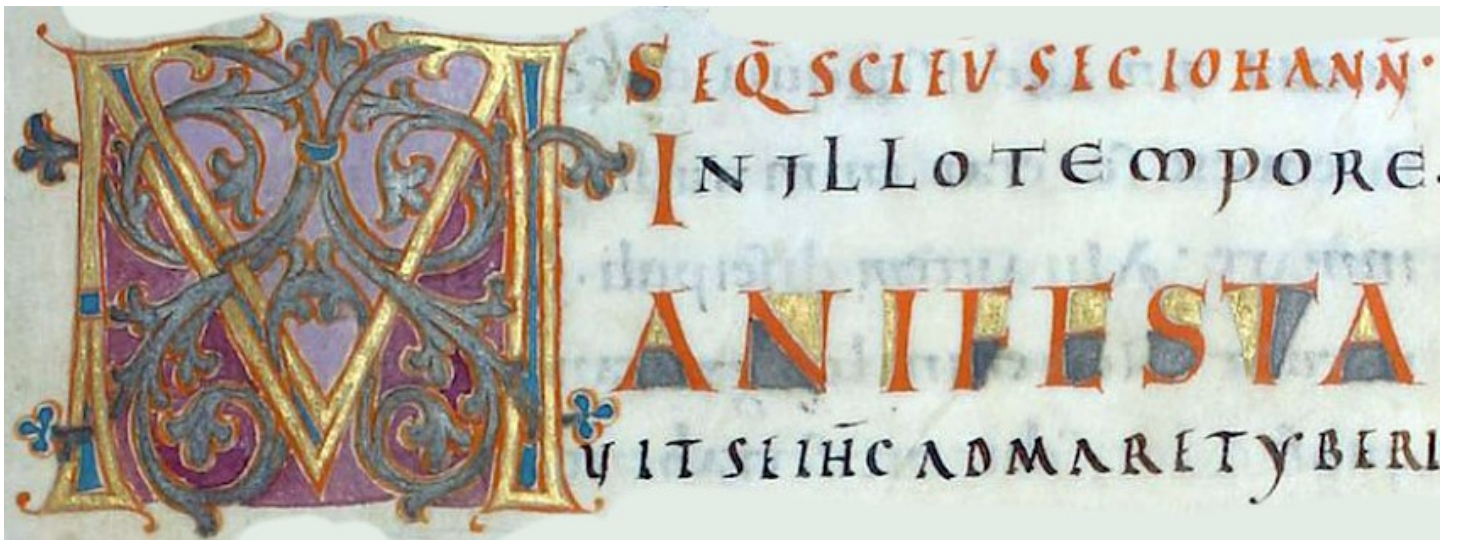 SEQ̄ SCI EV̄ SEC IOHANN̄·
IN ILLO TEMPORE.
MANIFESTA
VIT SE IH̄C AD MARE TYBERI